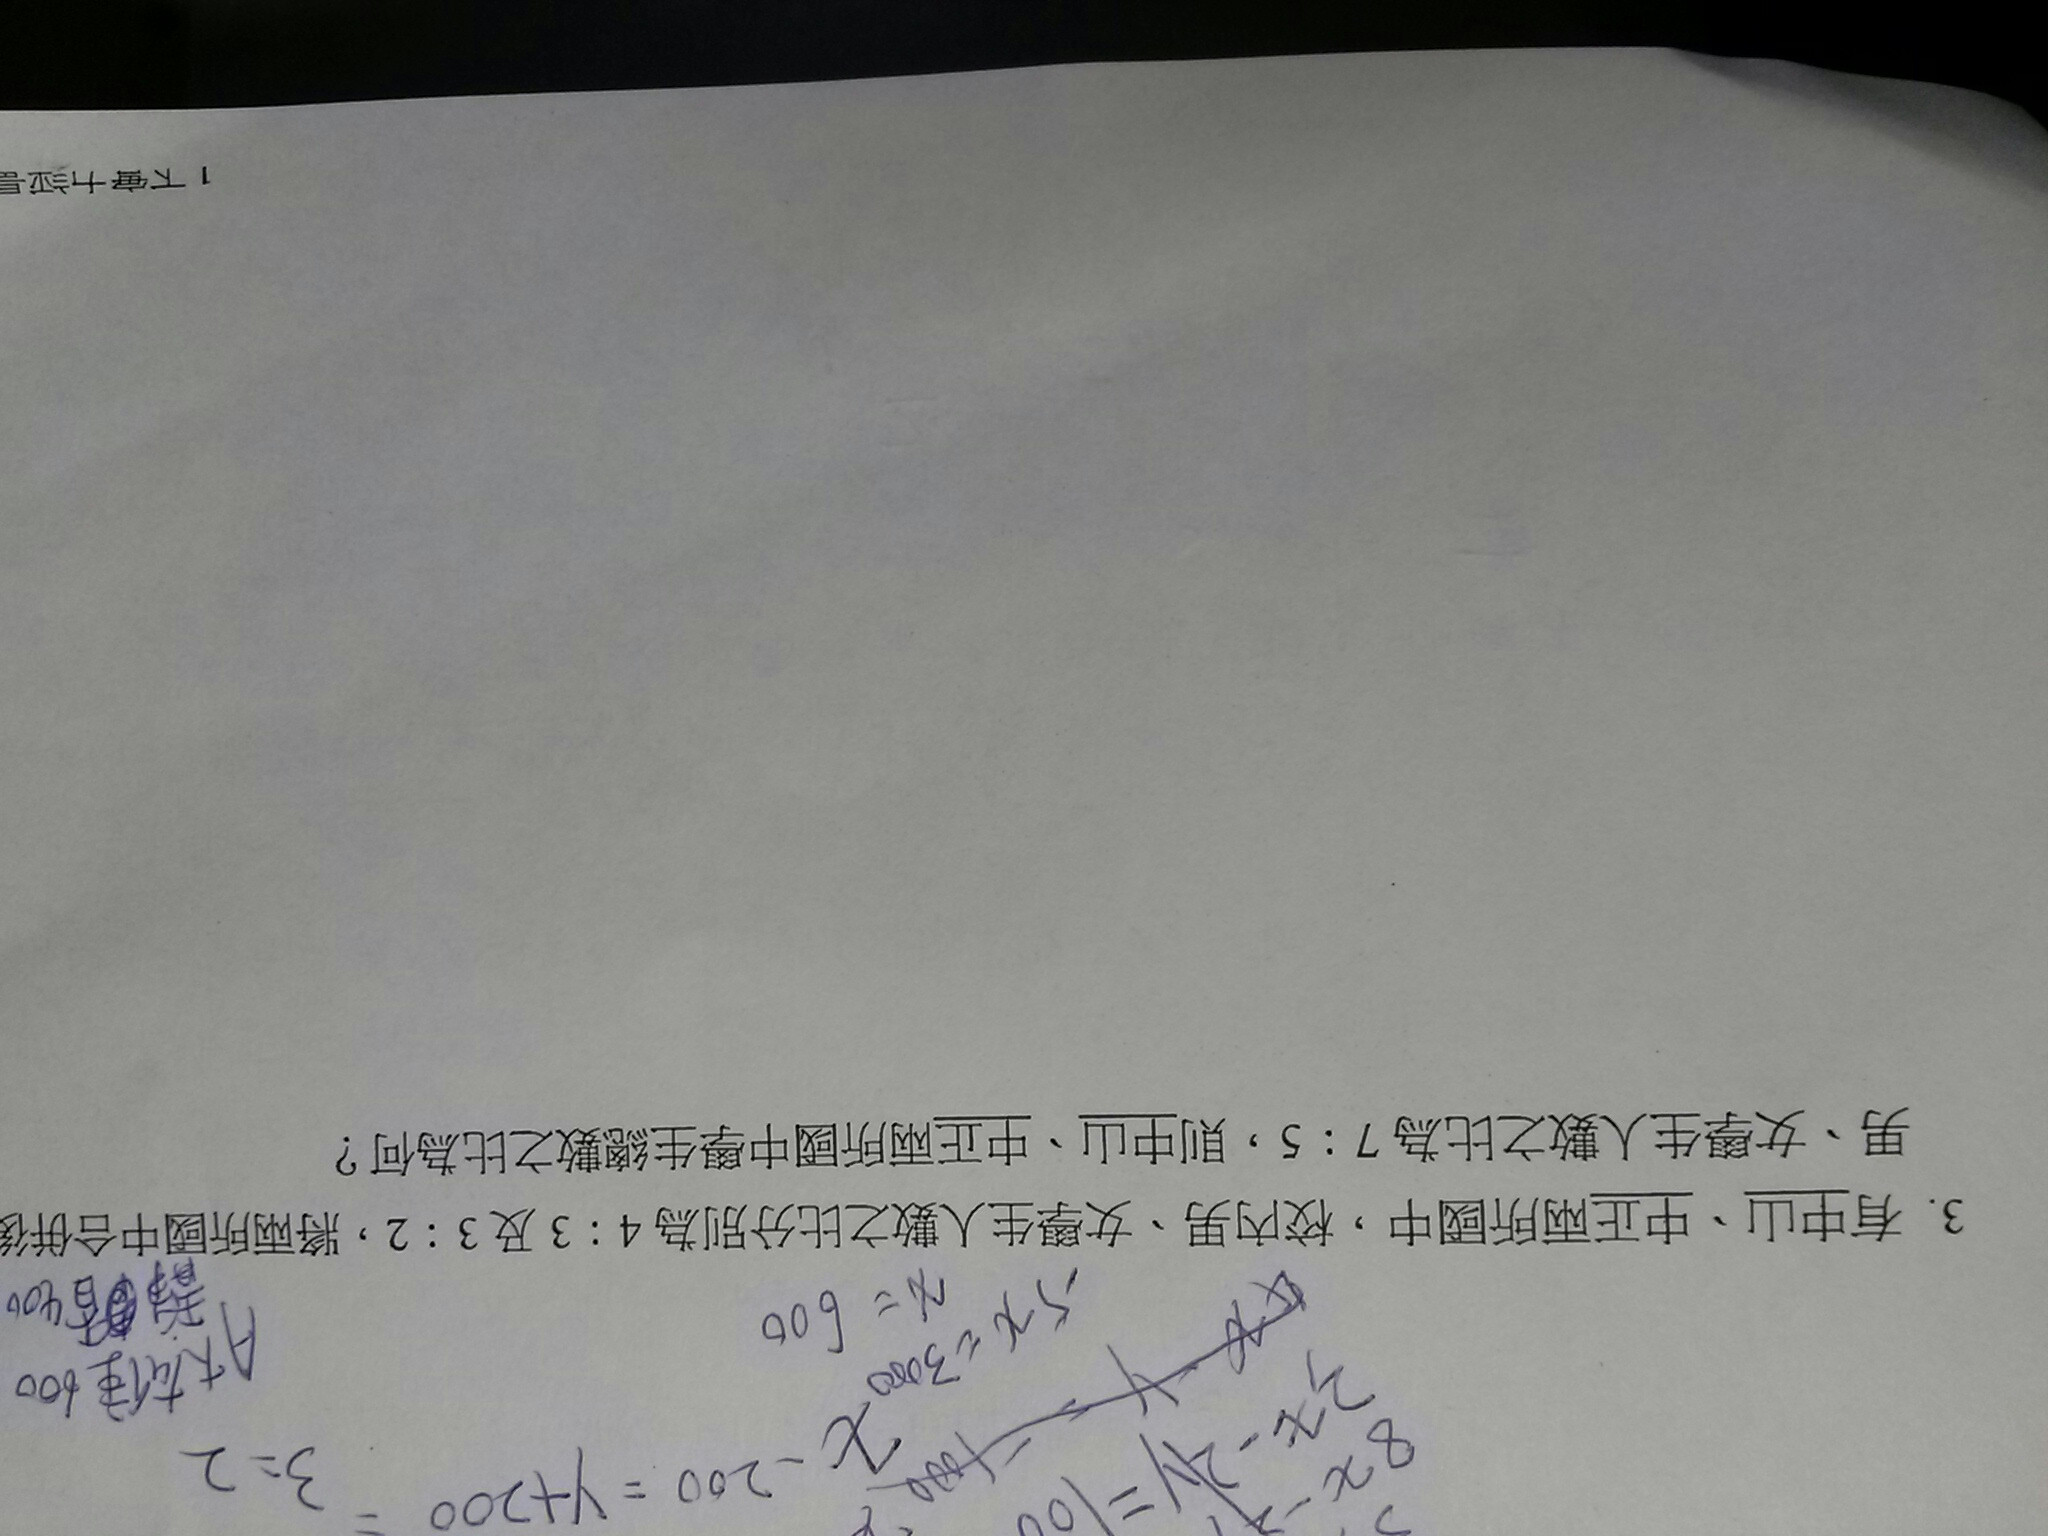 x - 200 = y + 200 = 3 = 2
8x - 
2x - 2y =
5x = 3000
x = 600
A大佳600
400
3. 有中山、中正兩所國中，校內男、女學生人數之比分別為 4：3 及 3：2，將兩所國中合併後
男、女學生人數之比為 7：5，則中山、中正兩所國中學生總數之比為何？
1